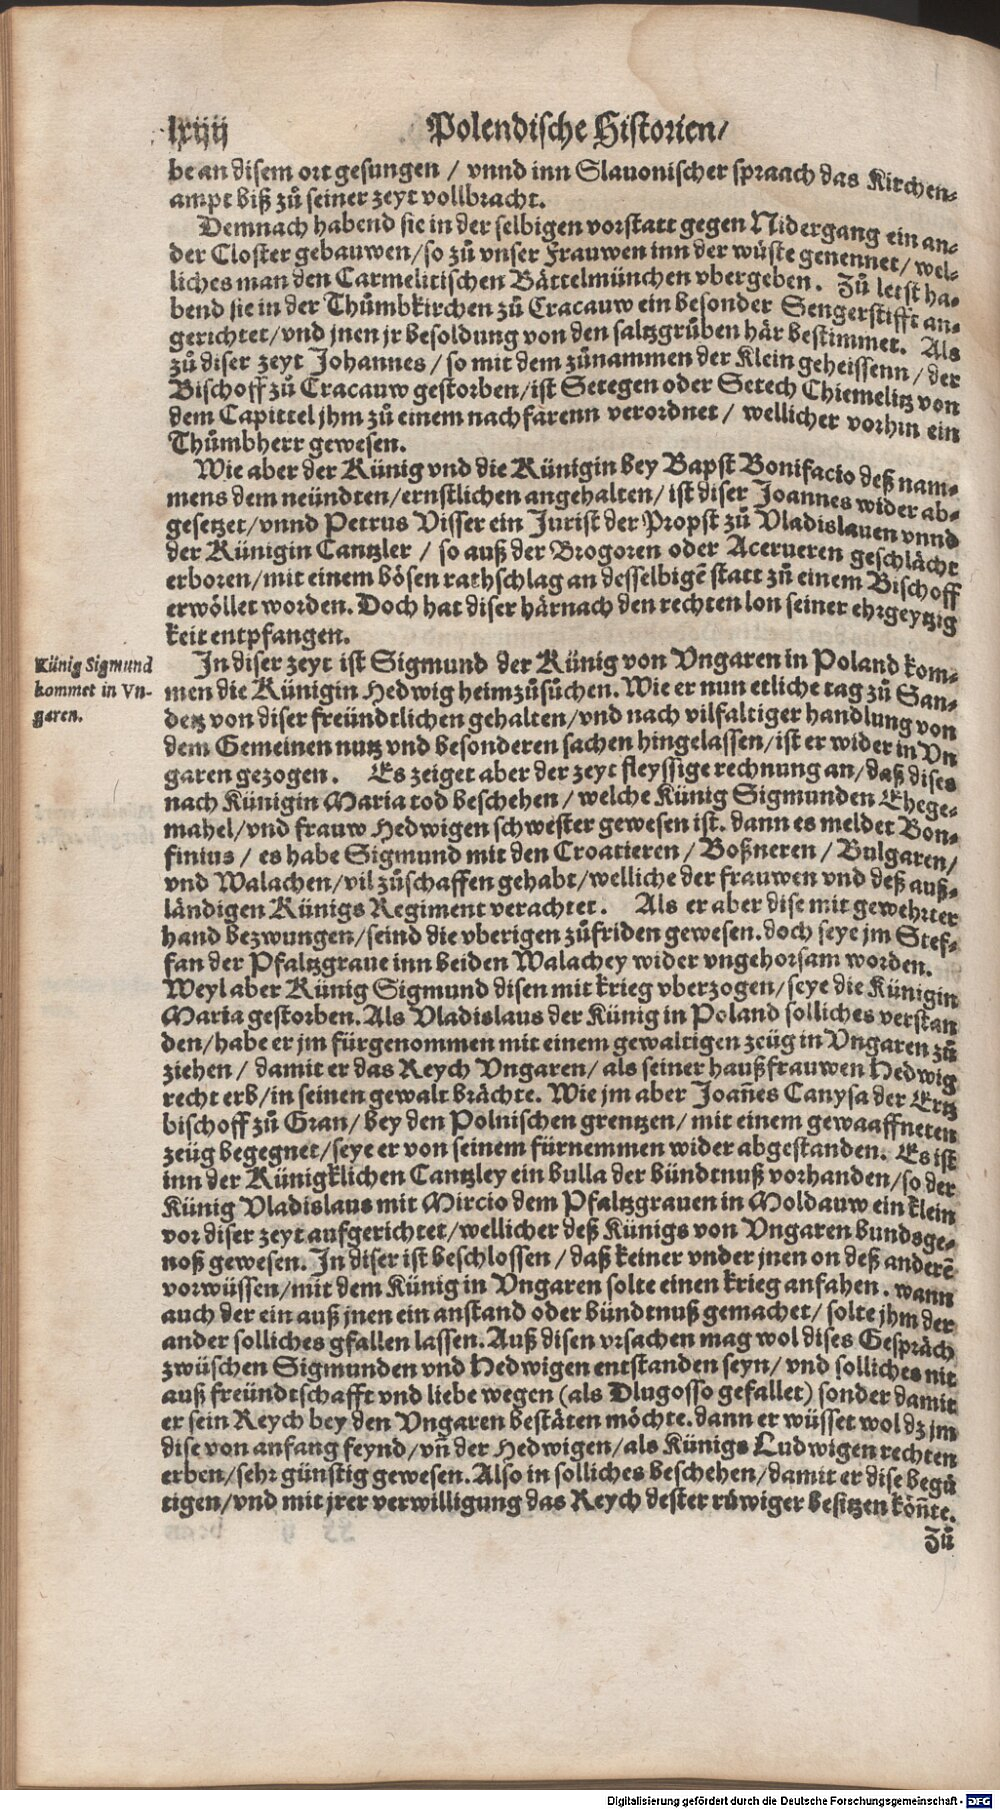 lxiij
Polendische Historien/
be an disem ort gesungen / vnnd inn Slauonischer spraach das Kirchen-
ampt biß zů seiner zeyt vollbracht.
Demnach habend sie in der selbigen vorstatt gegen Nidergang ein an-
der Closter gebauwen/ so zů vnser Frauwen inn der wůste genennet/ wel-
liches man den Carmelitischen Båttelmünchen vbergeben. Zů letst ha-
bend sie in der Thůmbkirchen zů Cracauw ein besonder Sengerstifft an-
gerichtet/ vnd jnen jr besoldung von den saltzgrůben hår bestimmet. Als
zů diser zeyt Johannes / so mit dem zůnammen der Klein geheissenn / der
Bischoff zů Cracauw gestorben/ ist Setegen oder Setech Chiemelitz von
dem Capittel jhm zů einem nachfarenn verordnet / wellicher vorhin ein
Thůmbherr gewesen.
Wie aber der Künig vnd die Künigin bey Bapst Bonifacio deß nam-
mens dem neündten/ ernstlichen angehalten/ ist diser Joannes wider ab-
gesetzet/ vnnd Petrus Visser ein Jurist der Propst zů Vladislauen vnnd
der Künigin Cantzler / so auß der Brogoren oder Acerueren geschlächt
erboren/ mit einem bösen rathschlag an desselbigẽ statt zů einem Bischoff
erwöllet worden. Doch hat diser härnach den rechten lon seiner ehrgeytzig
keit entpfangen.
Künig Sigmund
kommet in Vn-
garen.
In diser zeyt ist Sigmund der Künig von Vngaren in Poland kom-
men die Künigin Hedwig heimzůsůchen. Wie er nun etliche tag zů San-
detz von diser freündtlichen gehalten/ vnd nach vilfaltiger handlung von
dem Gemeinen nutz vnd besonderen sachen hingelassen/ ist er wider in Vn
garen gezogen. Es zeiget aber der zeyt fleyssige rechnung an/ daß dises
nach Künigin Maria tod beschehen / welche Künig Sigmunden Ehege-
mahel/ vnd frauw Hedwigen schwester gewesen ist. dann es meldet Bon-
finius / es habe Sigmund mit den Croatieren / Boßneren / Bulgaren/
vnd Walachen/ vil zůschaffen gehabt/ welliche der frauwen vnd deß auß-
ländigen Künigs Regiment verachtet. Als er aber dise mit gewehrter
hand bezwungen/ seind die vberigen zůfriden gewesen. doch seye jm Stef-
fan der Pfaltzgraue inn beiden Walachey wider vngehorsam worden.
Weyl aber Künig Sigmund disen mit krieg vberzogen/ seye die Künigin
Maria gestorben. Als Vladislaus der Künig in Poland solliches verstan
den/ habe er jm fürgenommen mit einem gewaltigen zeüg in Vngaren zů
ziehen / damit er das Reych Vngaren/ als seiner haußfrauwen Hedwig
recht erb/ in seinen gewalt brächte. Wie jm aber Joañes Canysa der Ertz
bischoff zů Gran/ bey den Polnischen grentzen/ mit einem gewaaffneten
zeüg begegnet/ seye er von seinem fürnemmen wider abgestanden. Es ist
inn der Künigklichen Cantzley ein bulla der bündtnuß vorhanden/ so der
Künig Vladislaus mit Mircio dem Pfaltzgrauen in Moldauw ein klein
vor diser zeyt aufgerichtet/ wellicher deß Künigs von Vngaren bundsge-
noß gewesen. In diser ist beschlossen / daß keiner vnder jnen on deß anderẽ
vorwüssen/ mit dem Künig in Vngaren solte einen krieg anfahen. wann
auch der ein auß jnen ein anstand oder bündtnuß gemachet/ solte jhm der
ander solliches gfallen lassen. Auß disen vrsachen mag wol dises Gespräch
zwüschen Sigmunden vnd Hedwigen entstanden seyn/ vnd solliches nit
auß freündtschafft vnd liebe wegen (als Dlugosso gefallet) sonder damit
er sein Reych bey den Vngaren bestäten möchte. dann er wüsset wol dz jm
dise von anfang feynd/ vñ der Hedwigen/ als Künigs Ludwigen rechten
erben/ sehr günstig gewesen. Also in solliches beschehen/ damit er dise begů
tigen/ vnd mit jrer verwilligung das Reych dester růwiger besitzen köñte.
Zů
Digitalisierung gefördert durch die Deutsche Forschungsgemeinschaft - DFG